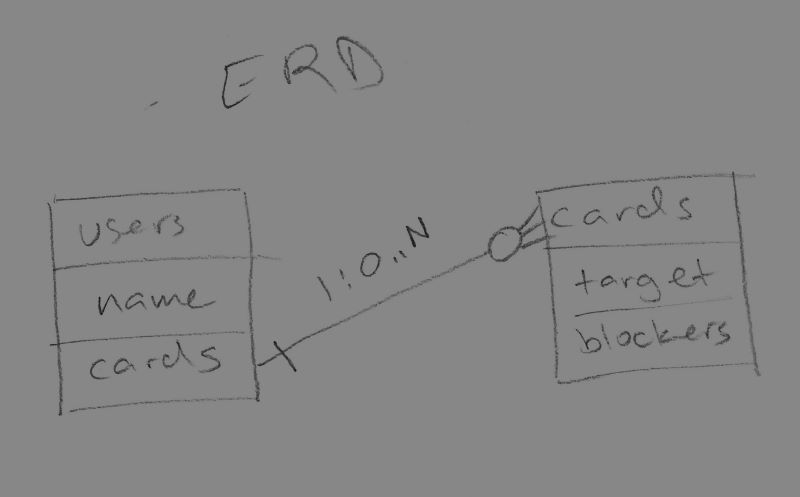 ERD
users
name
cards
1:0..N
cards
target
blockers